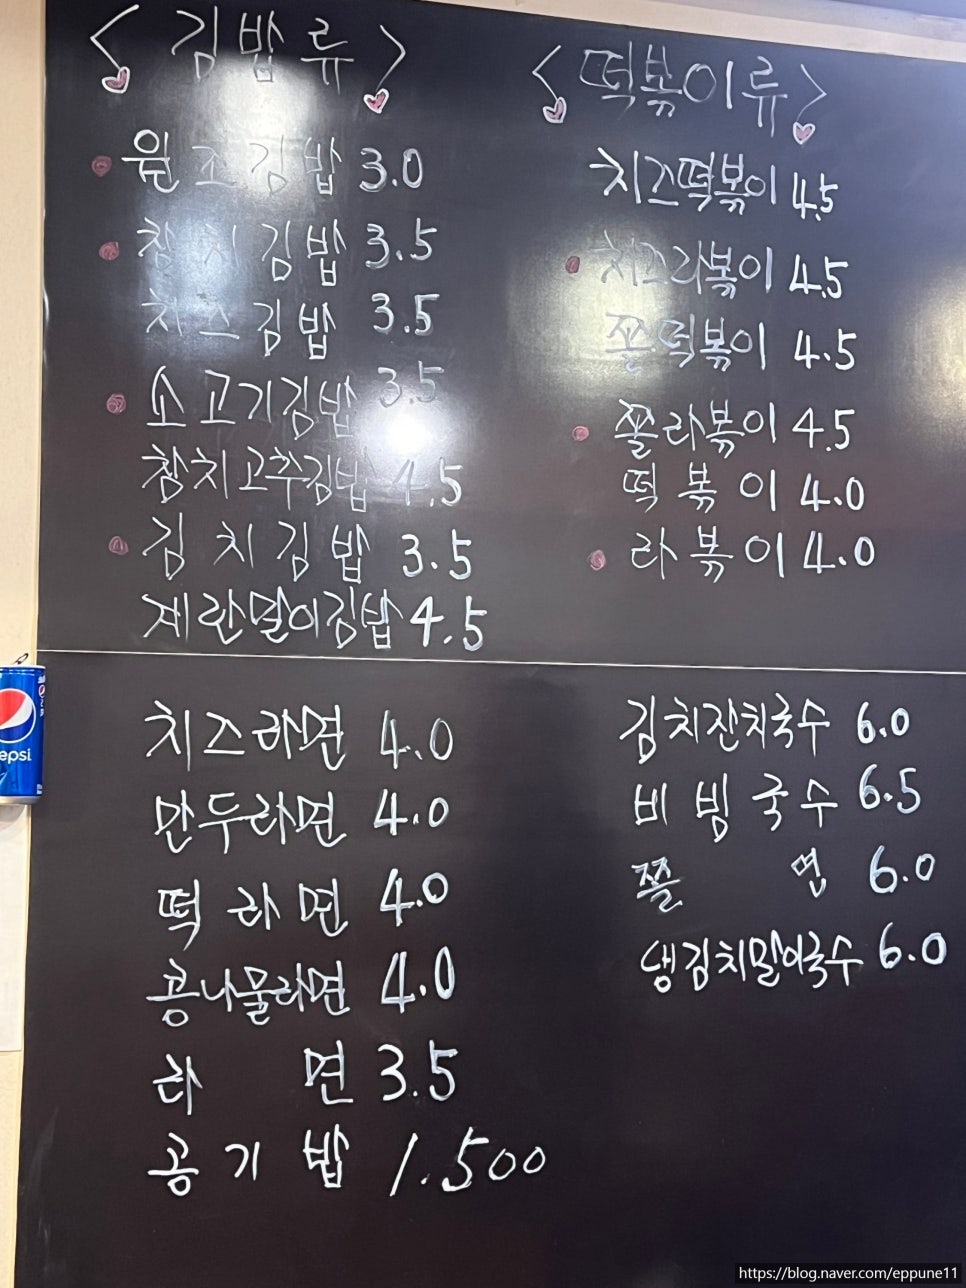 <김밥류>
원조김밥 3.0
참치김밥 3.5
치즈김밥 3.5
소고기김밥 3.5
참치고추김밥 4.5
김치김밥 3.5
계란말이김밥 4.5
<떡볶이류>
치즈떡볶이 4.5
치즈라볶이 4.5
쫄떡볶이 4.5
쫄라볶이 4.5
떡볶이 4.0
라볶이 4.0
pepsi
치즈라면 4.0
만두라면 4.0
떡라면 4.0
콩나물라면 4.0
라면 3.5
공기밥 1.500
김치잔치국수 6.0
비빔국수 6.5
쫄면 6.0
냉김치말이국수 6.0
https://blog.naver.com/eppune11